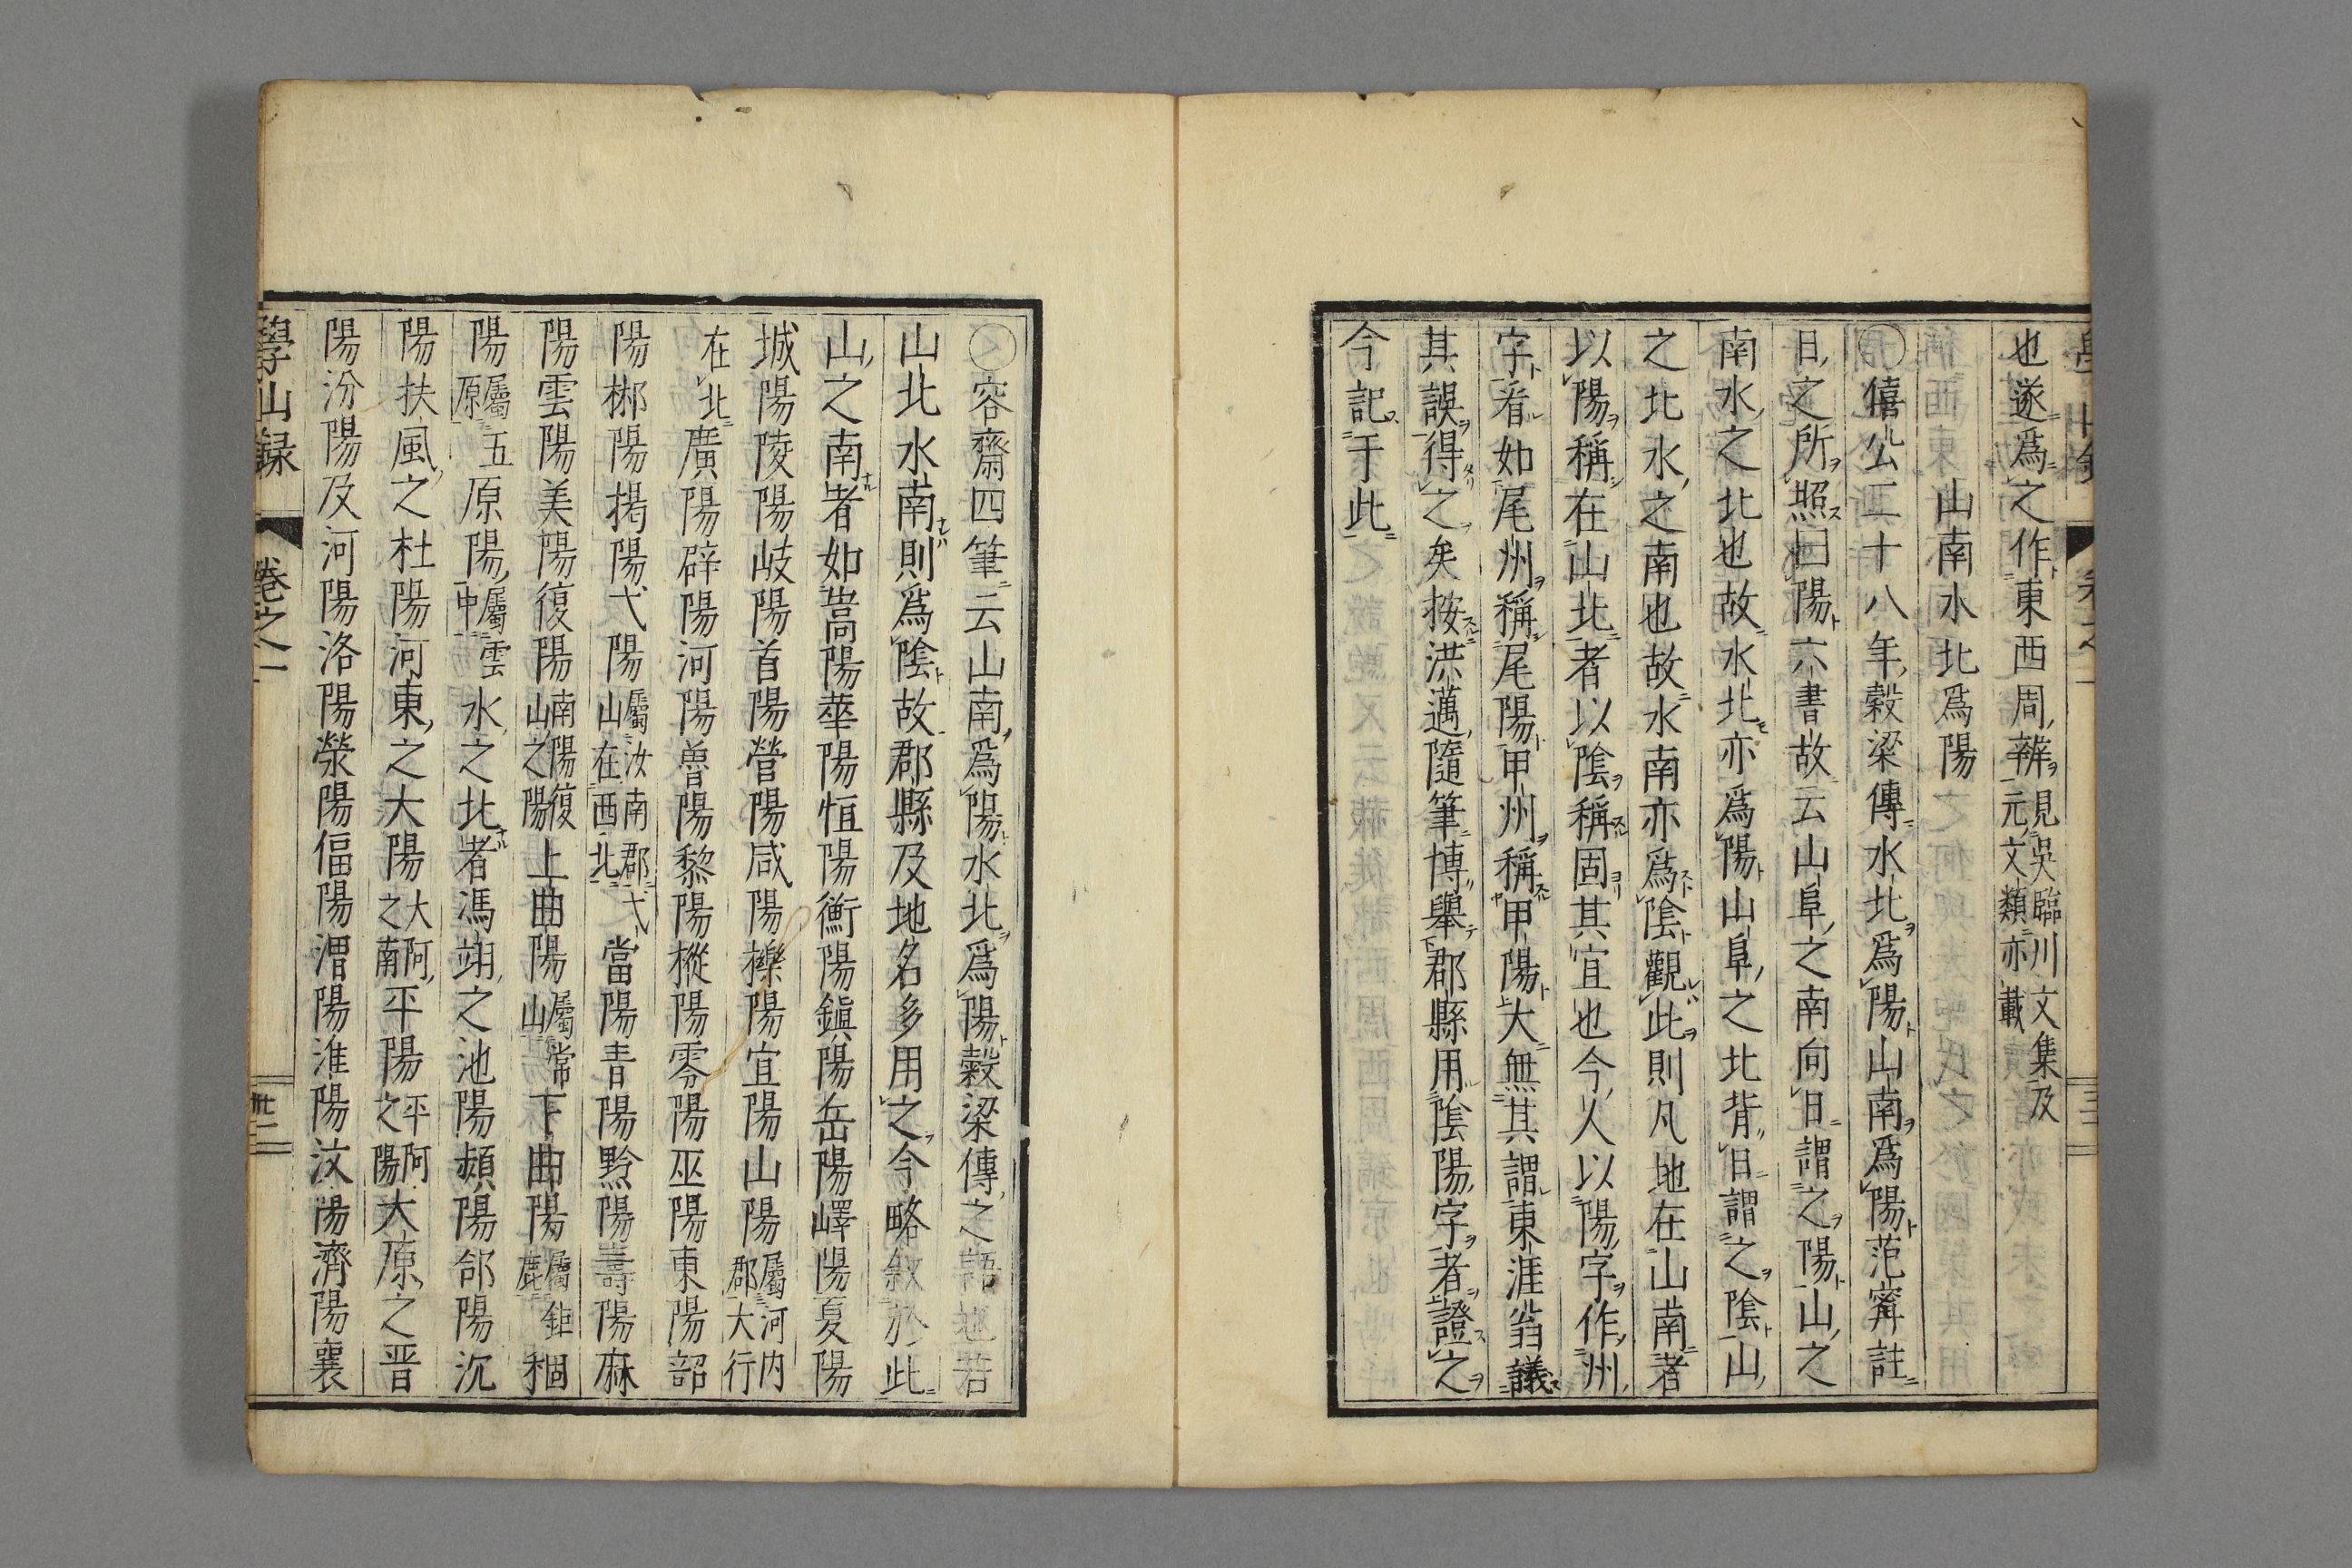 也遂爲之作東西周辨見吳臨川文集及元文類亦載
山南水北爲陽
○僖公二十八年穀梁傳水北爲陽山南爲陽范甯註
日之所照曰陽六書故云山阜之南向日謂之陽山之
南水之北也故水北亦爲陽山阜之北背日謂之陰山
之北水之南也故水南亦爲陰觀此則凡地在山南者
以陽稱在山北者以陰稱固其宜也今人以陽字作州
字看如尾州稱尾陽甲州稱甲陽大無其謂東涯翁議
其誤得之矣按洪邁隨筆博舉郡縣用陰陽字者證之
今記于此
○容齋四筆云山南爲陽水北爲陽穀梁傳之語也若
山北水南則爲陰故郡縣及地名多用之今略敘於此
山之南者如嵩陽華陽恒陽衡陽鎭陽岳陽嶧陽夏陽
城陽陵陽岐陽首陽營陽咸陽櫟陽宜陽山陽屬河内郡大行
在北廣陽辟陽河陽魯陽黎陽樅陽零陽巫陽東陽韶
陽郴陽揭陽弋陽屬汝南郡弋山在西北當陽青陽黔陽壽陽麻
陽雲陽美陽復陽南陽復山之陽上曲陽屬常山下曲陽屬鉅鹿稒
陽屬五原原陽屬雲中水之北者馮翊之池陽頻陽郃陽沈
陽扶風之杜陽河東之大陽大河之南平陽平河之陽大原之晋
陽汾陽及河陽洛陽滎陽偪陽漕陽淮陽汶陽濟陽襄
學山録 卷之一 卅二